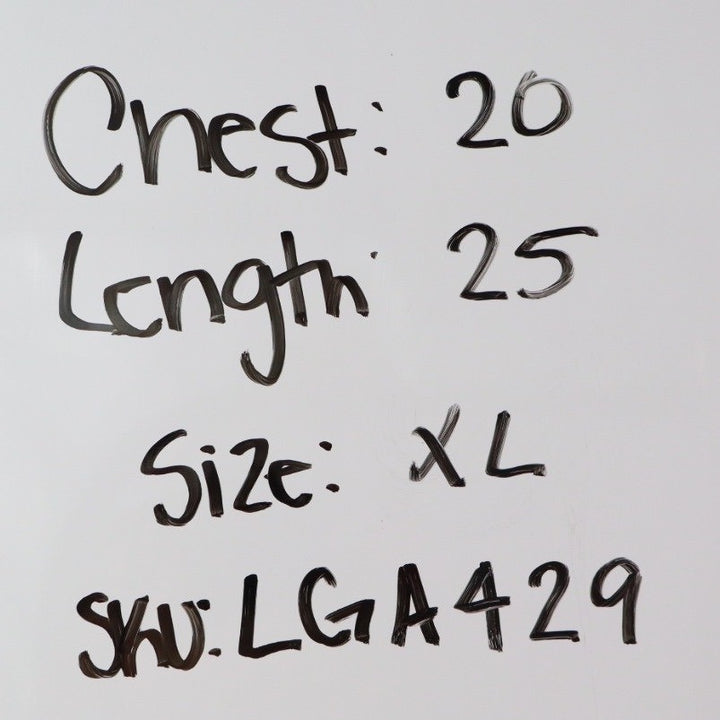 Chest: 20
Length: 25
Size: XL
SKU: LGA429